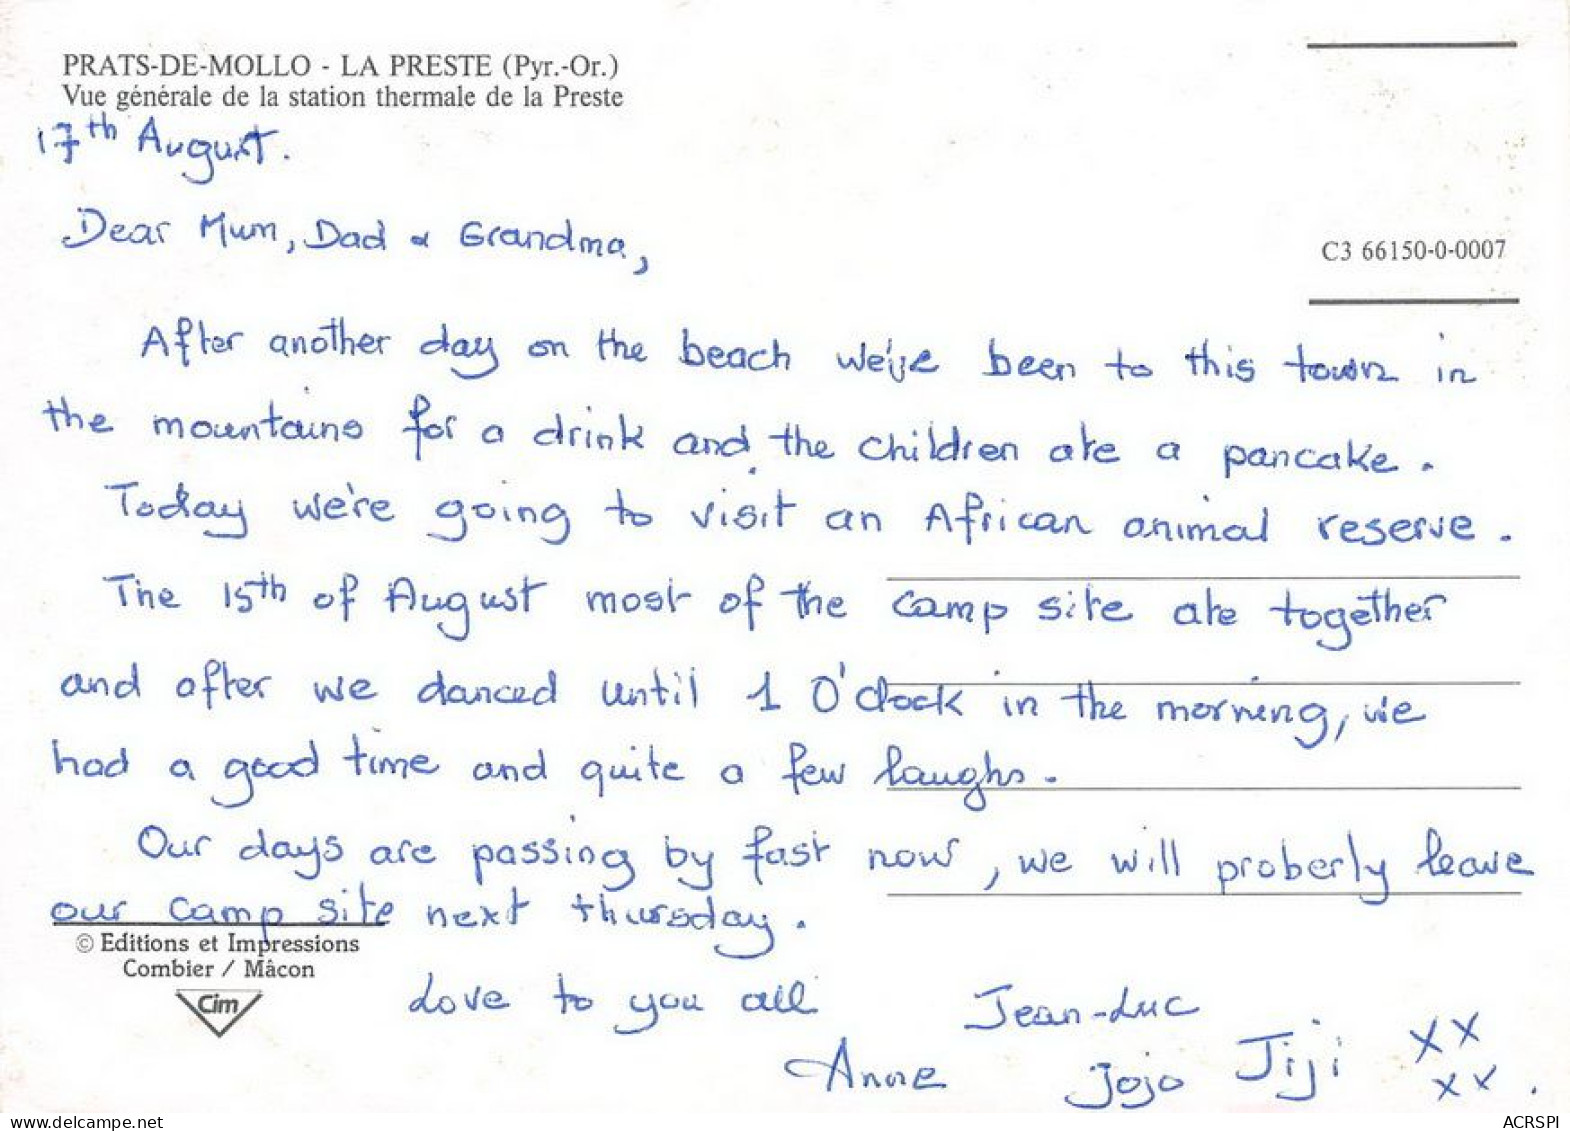 PRATS-DE-MOLLO - LA PRESTE (Pyr.-Or.)
Vue générale de la station thermale de la Preste
17th August.
Dear Mum, Dad & Grandma,
C3 66150-0-0007
After another day on the beach we've been to this town in
the mountains for a drink and the children ate a pancake.
Today we're going to visit an African animal reserve.
The 15th of August most of the camp site ate together
and after we danced until 1 O'clock in the morning, we
had a good time and quite a few laughs.
Our days are passing by fast now, we will proberly leave
our camp site next thursday.
© Editions et Impressions
Combier / Mâcon
Cim
Love to you all
Jean-Luc
Anne Jojo Jiji xx
xx.
ACRSPI